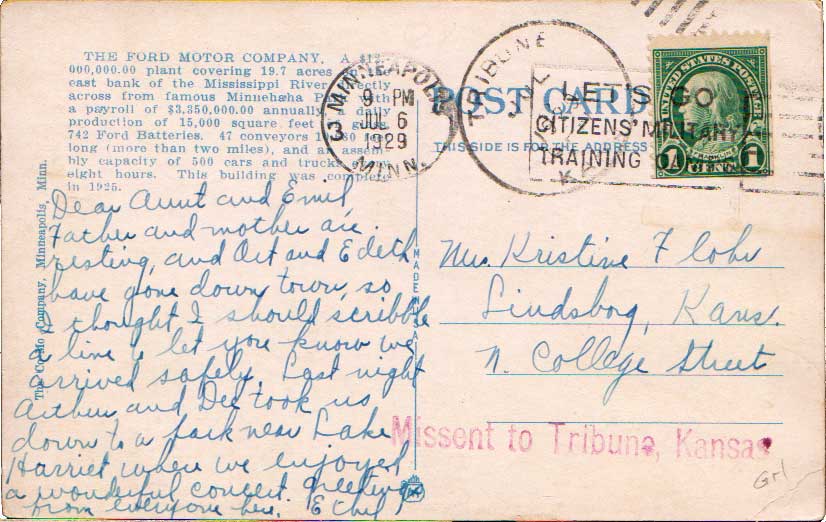 THE FORD MOTOR COMPANY. A $12,
000,000.00 plant covering 19.7 acres on
east bank of the Mississippi River directly
across from famous Minnehaha Park with
a payroll of $3,350,000.00 annually. A daily
production of 15,000 square feet of glass,
742 Ford Batteries. 47 conveyors
long (more than two miles), and an assem-
bly capacity of 500 cars and trucks
eight hours. This building was completed
in 1925.
The Co-Mo Company, Minneapolis, Minn.
MADE IN U.S.A.
MINNEAPOLIS
3
9 PM
JUL 6
1929
MINN.
TRIBUNE
JUL
KA
POST CARD
THIS SIDE IS FOR THE ADDRESS
LET'S GO
CITIZENS' MILITARY
TRAINING
UNITED STATES POSTAGE
FRANKLIN
1 CENT 1
Dear Aunt and Emil,
Father and mother are
resting, and Art and Edith
have gone down town, so
I thought I should scribble
a line to let you know we
arrived safely. Last night
Arthur and Dee took us
down to a park near Lake
Harriet where we enjoyed
a wonderful concert. Greetings
from everyone here. Ethel
Mrs. Kristine Flohr
Lindsborg, Kans.
N. College Street
Missent to Tribune, Kansas